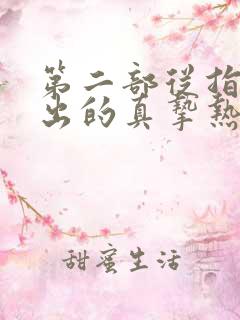 第二部从指
出的真挚热
甜蜜生活